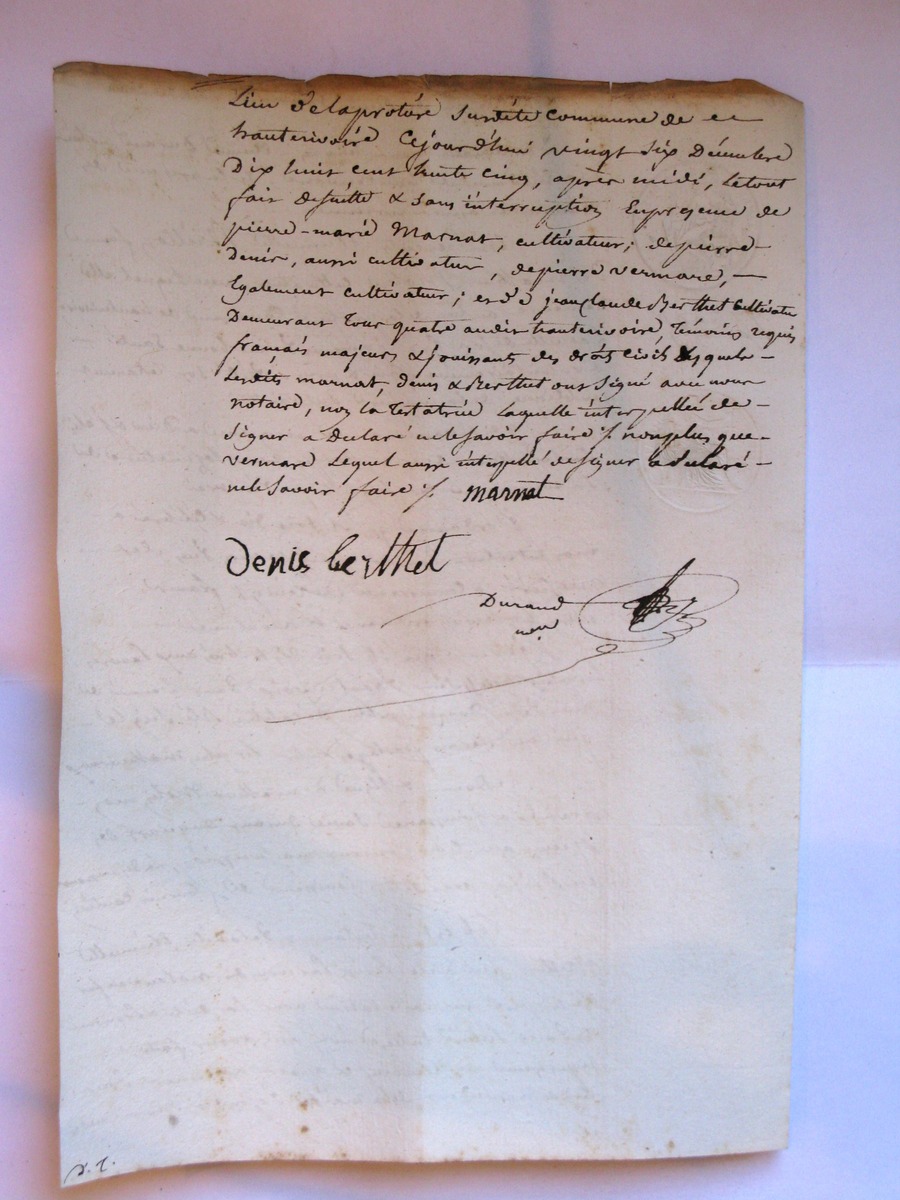 Lieu de laprotéré Surdite Commune de ce
hauterivoire Cejourd'hui vingt Six Décembre
Dix huit cent trente cinq, après midi, Letout
fait desuitte & sans interruption Enpresence de
pierre-marié Marnat, cultivateur; depierre-
Denis, aussi cultivateur, depierre vermare,-
Egalement cultivateur; et d'e jeanClaude Berthet Cultivate
Demeurant Tous quatre audit hauterivoire, Témoins requis
français majeurs & jouissants des droits civils desquels-
Lesdits marnat, denis & Berthet ont Signé avec nous
notaire, non la Testatrice Laquelle interpellée de-
Signer a declaré nelesavoir faire ./. nonplus que-
vermare Lequel aussi interpellé designer adeclaré-
nele Savoir faire ./. Marnat
Denis berthet
Durand
nore
D. T.